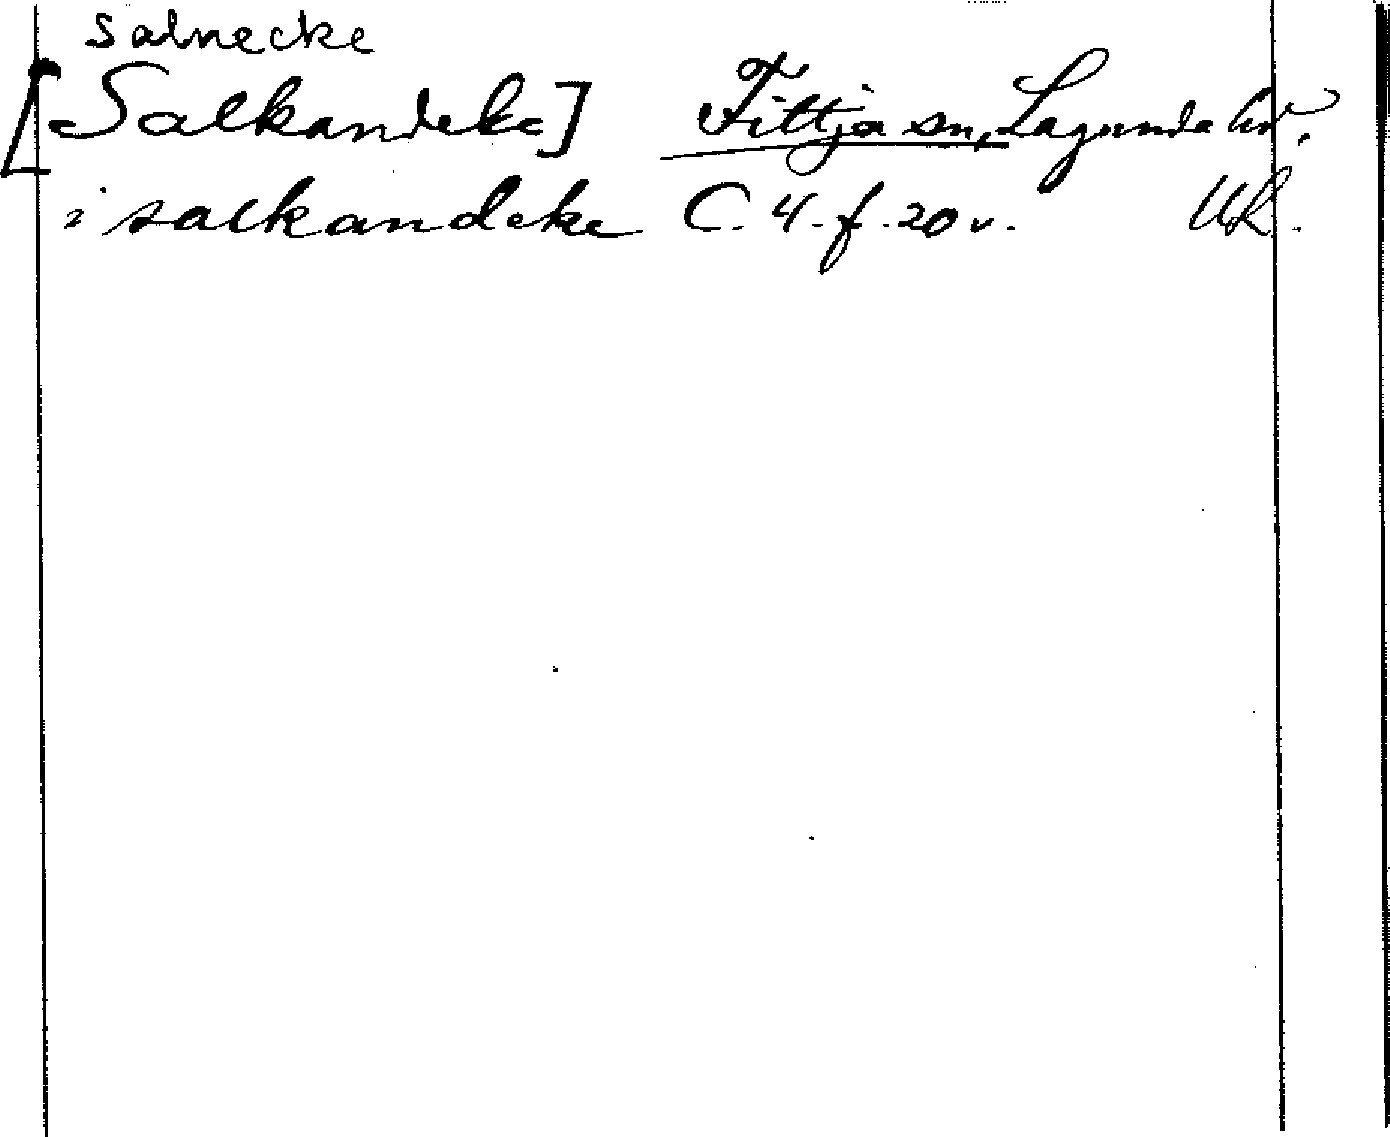 Salnecke
[Salkandeke] Fittja sn, Lagunda hd.
i salkandeke C. 4. f. 20 v. UR.